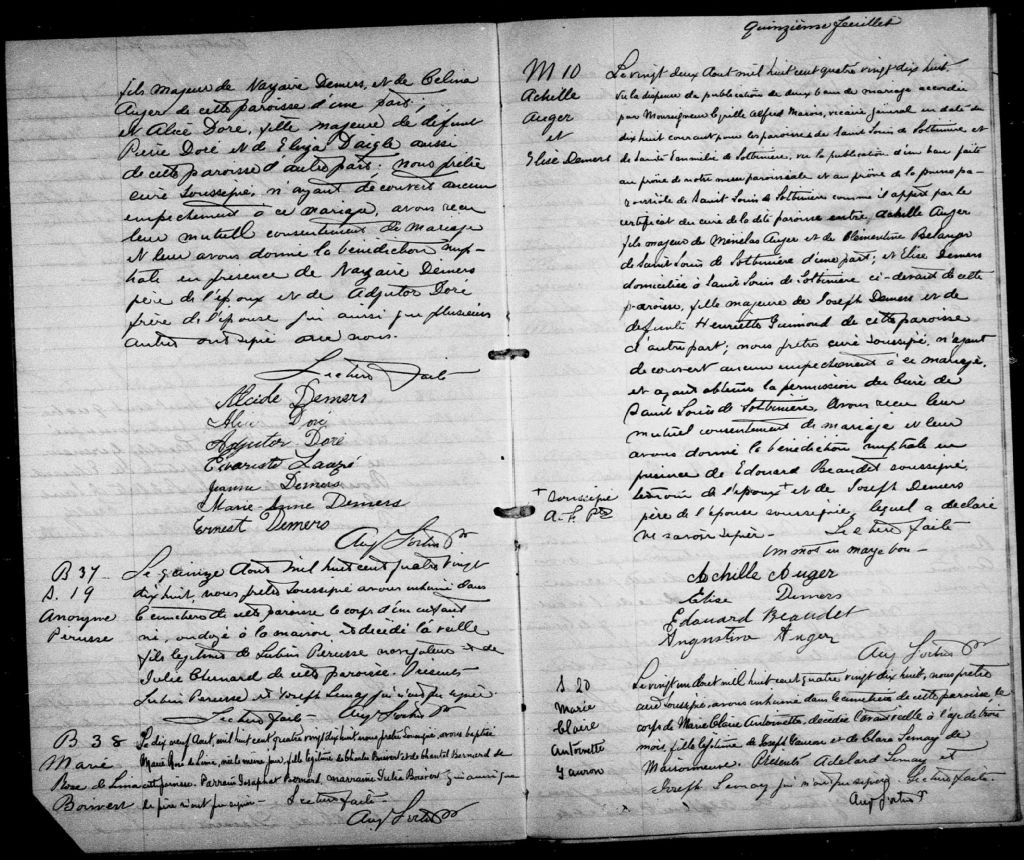 fils majeur de Nazaire Demers, et de Celina
Auger de cette paroisse d'une part;
et Alice Doré, fille majeure de défunt
Pierre Doré et de Eliza Daigle aussi
de cette paroisse d'autre part: nous prêtre
curé soussigné, n'ayant découvert aucun
empêchement à ce mariage, avons reçu
leur mutuell consentement de mariage
et leur avons donné la bénédiction nup-
tiale en présence de Nazaire Demers
père de l'époux et de Adjutor Doré
frère de l'épouse qui ainsi que plusieurs
autres ont signé avec nous.
Lecture faite
Alcide Demers
Alice Doré
Adjutor Doré
Evariste
Jeanne Demers
Marie-Anne Demers
Ernest Demers
Aug Fortier Ptre
B 37
S. 19
Anonyme
Perusse
Le quinze Aout mil huit cent quatre vingt
dix huit, nous prêtre soussigné avons inhumé dans
le cimetière de cette paroisse le corps d'un enfant
né, ondoyé à la maison, et décédé la veille
fils légitime de Lubin Perusse navigateur et de
Julie Chenard de cette paroisse. Présents
Lubin Perusse et Joseph Lemay qui n'ont pu signer.
Lecture faite Aug Fortier Ptre
B 38
Marie
Rose de Lima
Boisvert
Le dix neuf Aout, mil huit cent quatre vingt dix huit nous prêtre soussigné, avons baptisé
Marie Rose de Lima, née le même jour, fille légitime de Boisvert et de Chantal Bernard de
cette paroisse. Parrain Josaphat Bernard, marraine Julie Boisvert qui ainsi que
le père n'ont pu signer - Lecture faite -
Aug Fortier Ptre
Quinzième feuillet
M 10
Achille
Auger
et
Elise Demers
Le vingt deux Aout mil huit cent quatre vingt dix huit.
Vu la dispense de publication de deux bans de mariage accordée
par Monseigneur Cyrille Alfred Marois, vicaire général en date du
dix huit courant pour les paroisses de Saint Louis de Lotbinière, et
de Sainte Emmélie de Lotbinière, vu la publication d'un ban faite
au prône de notre messe paroissiale et au prône de la messe pa-
roissiale de Saint Louis de Lotbinière comme il appert par le
certificat du curé de la dite paroisse entre, Achille Auger
fils majeur de Ménélas Auger et de Clémentine Belanger
de Saint Louis de Lotbinière d'une part; et Elise Demers
domiciliée à Saint Louis de Lotbinière ci-devant de cette
paroisse, fille majeure de Joseph Demers et de
défunte Henriette Guimond de cette paroisse
d'autre part; nous prêtre curé soussigné, n'ayant
découvert aucun empêchement à ce mariage,
et ayant obtenu la permission du Curé de
Saint Louis de Lotbinière, avons reçu leur
mutuel consentement de mariage et leur
avons donné la bénédiction nuptiale en
présence de Edouard Beaudet soussigné,
témoin de l'époux + et de Joseph Demers
père de l'épouse soussignée, lequel a déclaré
ne savoir signer. - Lecture faite
+ soussigné
A. F. Ptre
Un mot en marge bon -
Achille Auger
Elise Demers
Edouard Beaudet
Angustina Auger
Aug Fortier Ptre
S 20
Marie
Claire
Antoinette
Gauron
Le vingt un Aout mil huit cent quatre vingt dix huit, nous prêtre
curé soussigné, avons inhumé dans le cimetière de cette paroisse le
corps de Marie Claire Antoinette, décédée l'avant veille à l'âge de trois
mois, fille légitime de Joseph Gauron et de Clara Lemay de
Maisonneuve. Présents Adélard Lemay et
Joseph Lemay qui n'ont pu signer. Lecture faite.
Aug Fortier Ptre